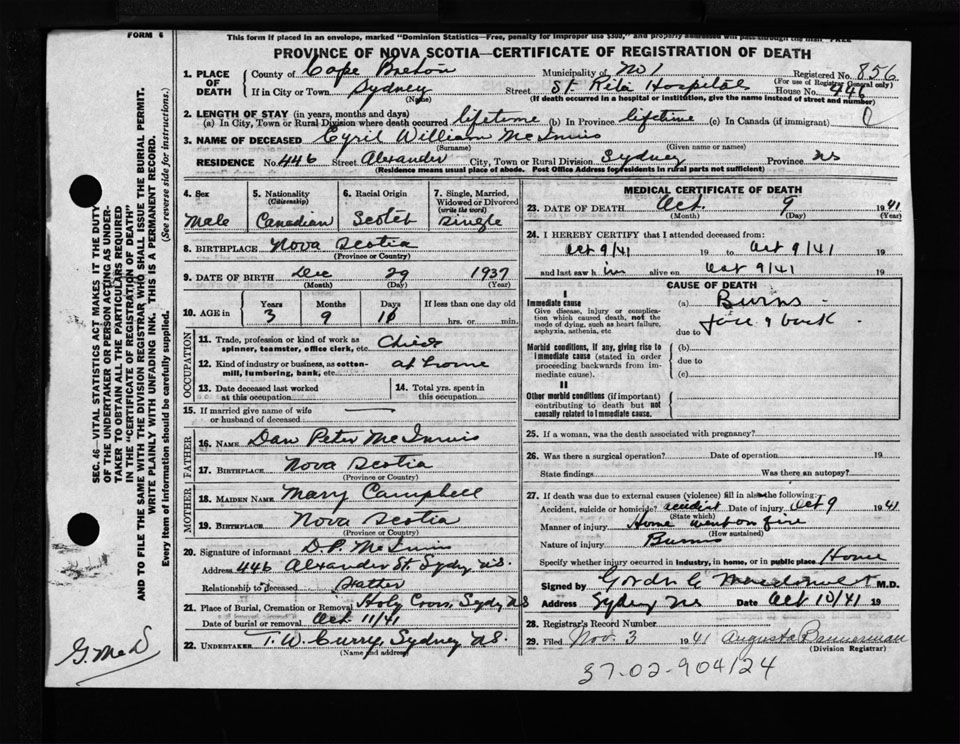 FORM 6
This form if placed in an envelope, marked "Dominion Statistics—Free, penalty for improper use $300," and properly addressed will pass through the mail FREE
PROVINCE OF NOVA SCOTIA—CERTIFICATE OF REGISTRATION OF DEATH
1. PLACE OF DEATH
County of Cape Breton Municipality of No 1 Registered No. 856
(For use of Registrar General only)
If in City or Town Sydney Street St. Rita Hospital House No. 446
(Name) (If death occurred in a hospital or institution, give the name instead of street and number)
2. LENGTH OF STAY (in years, months and days)
(a) In City, Town or Rural Division where death occurred lifetime (b) In Province lifetime (c) In Canada (if immigrant)
3. NAME OF DECEASED Cyril William McInnis
(Surname) (Given name or names)
RESIDENCE No. 446 Street Alexander City, Town or Rural Division Sydney Province NS
(Residence means usual place of abode. Post Office Address for residents in rural parts not sufficient)
4. Sex
Male
5. Nationality
(Citizenship)
Canadian
6. Racial Origin
Scotch
7. Single, Married, Widowed or Divorced
(write the word)
Single
8. BIRTHPLACE Nova Scotia
(Province or Country)
9. DATE OF BIRTH Dec 29 1937
(Month) (Day) (Year)
10. AGE in
Years Months Days If less than one day old
3 9 10 hrs. or min.
OCCUPATION
11. Trade, profession or kind of work as spinner, teamster, office clerk, etc. Child
12. Kind of industry or business, as cotton-mill, lumbering, bank, etc. at home
13. Date deceased last worked at this occupation
14. Total yrs. spent in this occupation
15. If married give name of wife or husband of deceased —
FATHER
16. NAME Dan Peter McInnis
17. BIRTHPLACE Nova Scotia
(Province or Country)
MOTHER
18. MAIDEN NAME Mary Campbell
19. BIRTHPLACE Nova Scotia
(Province or Country)
20. Signature of informant D.P. McInnis
Address 446 Alexander St Sydney N.S.
Relationship to deceased Father
21. Place of Burial, Cremation or Removal Holy Cross, Sydney NS
Date of burial or removal Oct 11/41
22. UNDERTAKER T. W. Curry, Sydney N.S.
(Name and address)
MEDICAL CERTIFICATE OF DEATH
23. DATE OF DEATH Oct. 9 1941
(Month) (Day) (Year)
24. I HEREBY CERTIFY that I attended deceased from:
Oct 9/41 19 to Oct 9/41 19
and last saw him alive on Oct 9/41 19
CAUSE OF DEATH
I
Immediate cause
Give disease, injury or complication which caused death, not the mode of dying, such as heart failure, asphyxia, asthenia, etc
(a) Burns
face & back
due to
Morbid conditions, if any, giving rise to immediate cause (stated in order proceeding backwards from immediate cause).
(b)
due to
(c)
II
Other morbid conditions (if important) contributing to death but not causally related to immediate cause.
25. If a woman, was the death associated with pregnancy?
26. Was there a surgical operation? Date of operation 19
State findings Was there an autopsy?
27. If death was due to external causes (violence) fill in also the following:
Accident, suicide or homicide? accident Date of injury Oct 9 1941
(State which)
Manner of injury Home went on fire
(How sustained)
Nature of injury Burns
Specify whether injury occurred in industry, in home, or in public place Home
Signed by Gordon C. Macdonald M.D.
Address Sydney NS Date Oct 10/41 19
28. Registrar's Record Number
29. Filed Nov. 3 1941 Augusta Bannerman
(Division Registrar)
37-02-904/24
G. McD
SEC. 46—VITAL STATISTICS ACT MAKES IT THE DUTY
OF THE UNDERTAKER OR PERSON ACTING AS UNDERTAKER
TO OBTAIN ALL THE PARTICULARS REQUIRED
IN THE "CERTIFICATE OF REGISTRATION OF DEATH"
AND TO FILE THE SAME WITH THE DIVISION REGISTRAR WHO SHALL ISSUE THE BURIAL PERMIT.
WRITE PLAINLY WITH UNFADING INK. THIS IS A PERMANENT RECORD.
Every item of information should be carefully supplied. (See reverse side for instructions.)